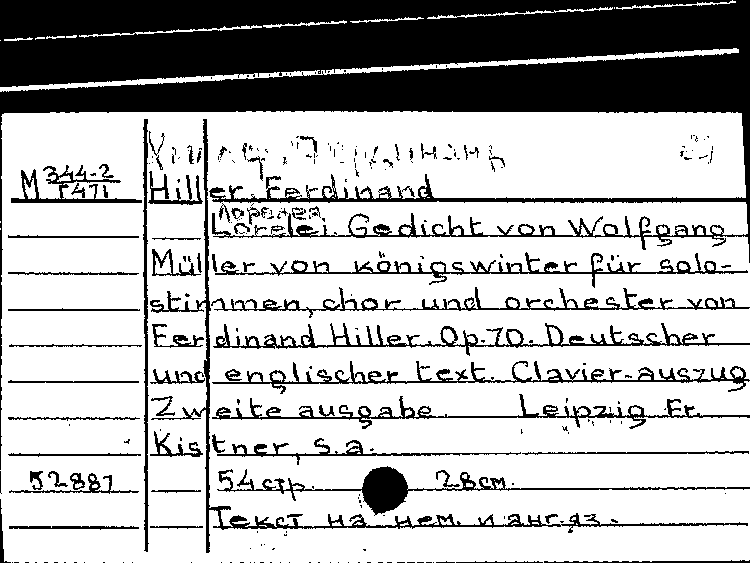 M 344-2
Г471
Hiller, Ferdinand
Лорелея
Lorelei. Gedicht von Wolfgang
Müller von königswinter für solo-
stimmen, chor und orchester von
Ferdinand Hiller. Op. 70. Deutscher
und englischer text. Clavier-auszug
Zweite ausgabe. Leipzig Fr.
Kistner, s.a.
52887 54 стр. 28 см.
Текст на нем. и анг. яз.